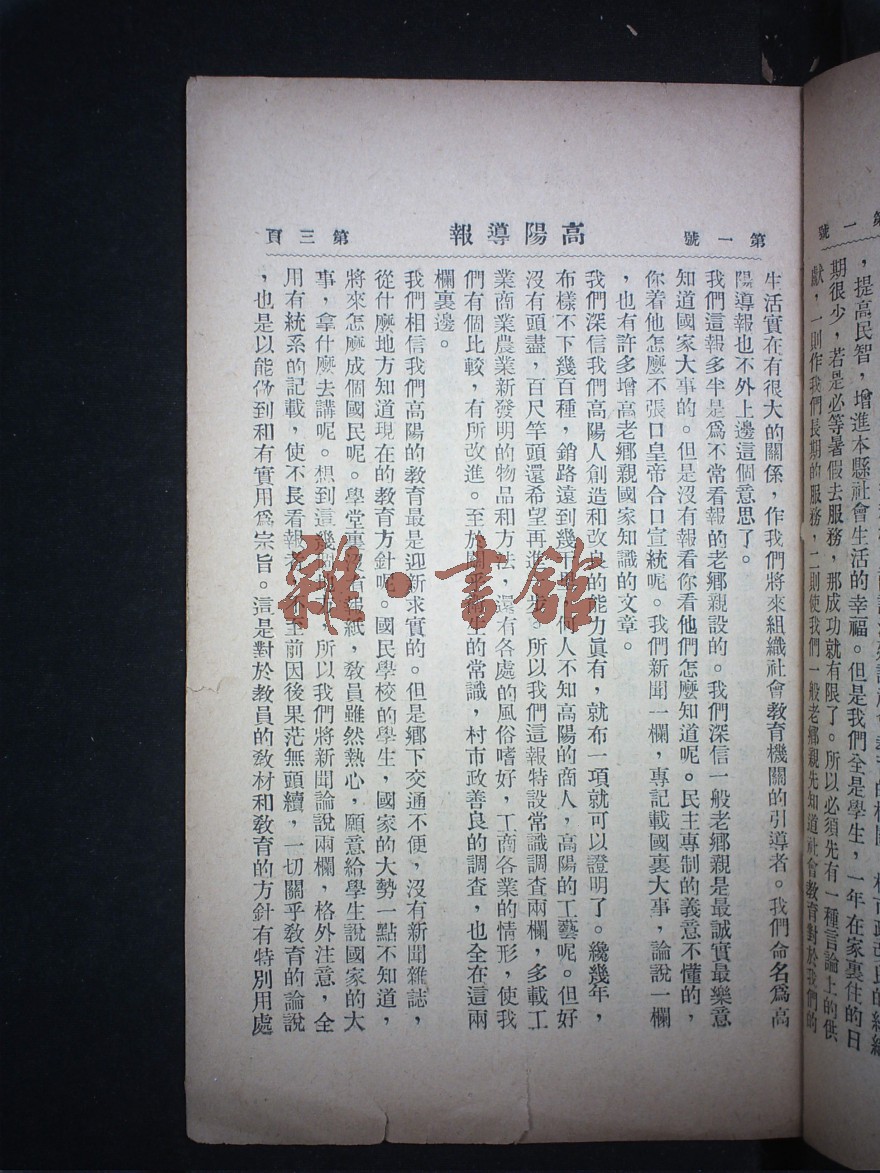 第一號
，提高民智，增進本縣社會生活的幸福。但是我們全是學生，一年在家裏住的日
期很少，若是必等暑假去服務，那成功就有限了。所以必須先有一種言論上的供
獻，一則作我們長期的服務，二則使我們一般老鄉親先知道社會教育對於我們的
第一號　高陽導報　第三頁
生活實在有很大的關係，作我們將來組織社會教育機關的引導者。我們命名爲高
陽導報也不外上邊這個意思了。
我們這報多半是爲不常看報的老鄉親設的。我們深信一般老鄉親是最誠實最樂意
知道國家大事的。但是沒有報看你看他們怎麼知道呢。民主專制的義意不懂的，
你着他怎麼不張口皇帝合口宣統呢。我們新聞一欄，專記載國裏大事，論說一欄
，也有許多增高老鄉親國家知識的文章。
我們深信我們高陽人創造和改良的能力眞有，就布一項就可以證明了。纔幾年，
布樣不下幾百種，銷路遠到幾千里，何人不知高陽的商人，高陽的工藝呢。但好
沒有頭盡，百尺竿頭還希望再進一步。所以我們這報特設常識調查兩欄，多載工
業商業農業新發明的物品和方法，還有各處的風俗嗜好，工商各業的情形，使我
們有個比較，有所改進。至於關乎衛生的常識，村市政善良的調查，也全在這兩
欄裏邊。
我們相信我們高陽的教育最是迎新求實的。但是鄉下交通不便，沒有新聞雜誌，
從什麼地方知道現在的教育方針呢。國民學校的學生，國家的大勢一點不知道，
將來怎麼成個國民呢。學堂裏沒有報紙，教員雖然熱心，願意給學生說國家的大
事，拿什麼去講呢。想到這幾個地方，所以我們將新聞論說兩欄，格外注意，全
用有統系的記載，使不長看報者，不至前因後果茫無頭續，一切關乎教育的論說
，也是以能做到和有實用爲宗旨。這是對於教員的教材和教育的方針有特別用處
雜·書館